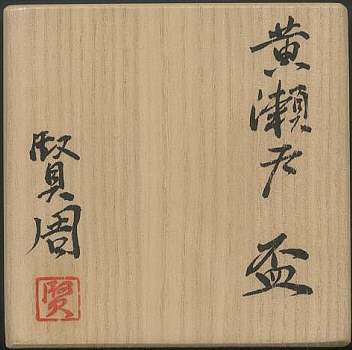 黄瀬戸 盃
賢周
賢